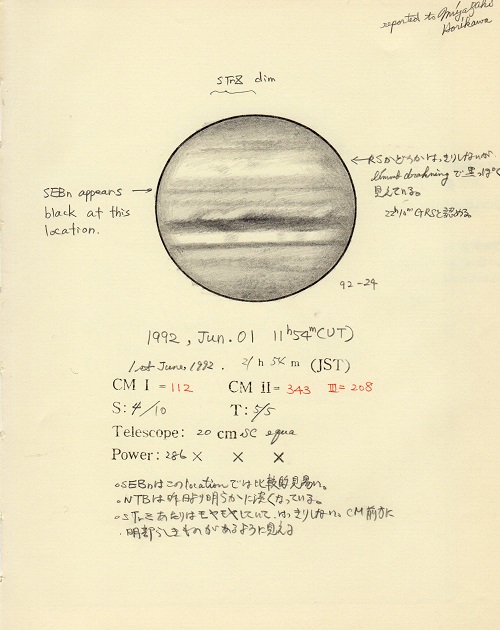 reported to Miyazaki
Horikawa
STrZ dim
SEBn appears
black at this
location.
←RSかどうかはっきりしないが
limb darkeningで黒っぽく
見えている。
22h10m GRSと認める。
92-24
1992, Jun. 01 11h54m(UT)
1st June, 1992. 21h 54m (JST)
CM I = 112 CM II = 343 III = 208
S: 4/10 T: 5/5
Telescope: 20 cm SC equa
Power: 286 × × ×
○SEBnはこのlocationでは比較的見易い。
○NTBは昨日より明らかに淡くなっている。
○STrZあたりはモヤモヤしていて、はっきりしない。CM前方に
明部らしきものがあるように見える